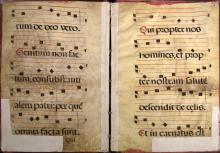 rum de deo vero.
Genitum non fac
tum, consubstanti
alem patri: per que
omnia facta sunt.
Qui
Qui propter nos
homines, et prop
ter nostram salute
descendit de celis.
Et incarnatus est